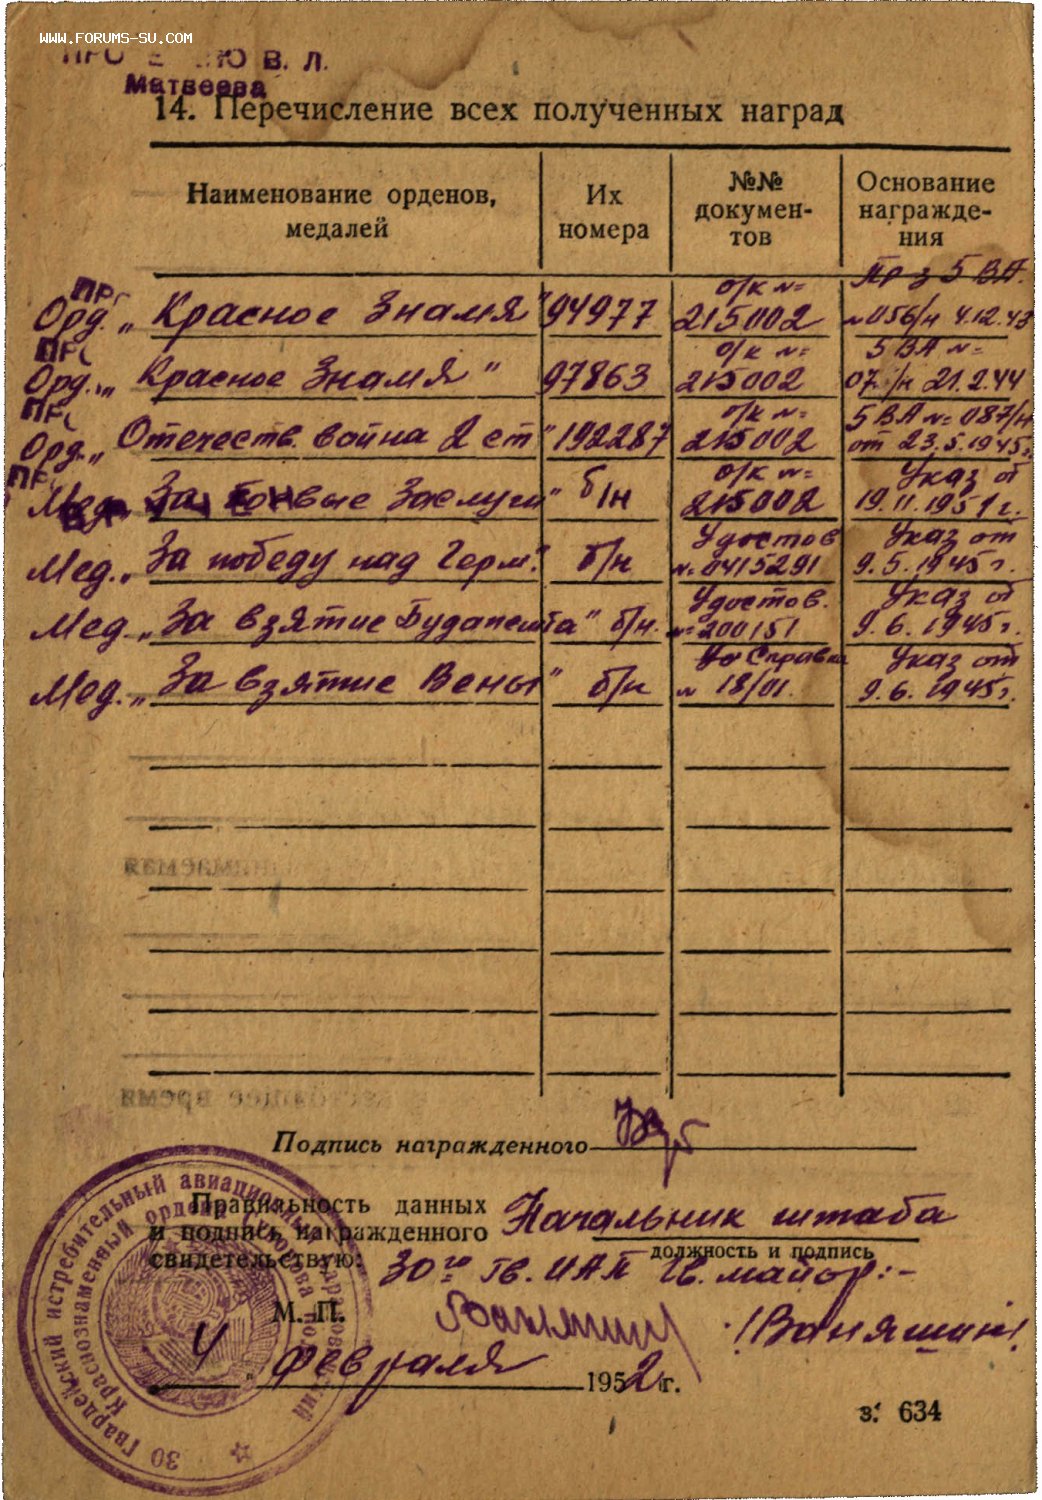 WWW.FORUMS-SU.COM
В. Л.
Матвеева
14. Перечисление всех полученных наград
Наименование орденов, медалей
Их номера
№№ документов
Основание награждения
Орд. „Красное Знамя" 94977 о/к № 215002 Пр-з 5 ВА. №056/н 4.12.43
Орд. „Красное Знамя" 97863 о/к № 215002 5 ВА № 07/н 21.2.44
Орд. „Отечеств. война 2 ст" 192287 о/к № 215002 5 ВА № 087/н от 23.5.1945г.
Мед. За боевые Заслуги" б/н о/к № 215002 Указ от 19.11.1951г.
Мед. „За победу над Герм." б/н Удостов № 0415291 Указ от 9.5.1945г.
Мед. „За взятие Будапешта" б/н. Удостов. № 200151 Указ от 9.6.1945г.
Мед. „За взятие Вены" б/н Справка № 18/01. Указ от 9.6.1945г.
Подпись награжденного
Правильность данных
и подпись награжденного
свидетельствую:
Начальник штаба
должность и подпись
30го Гв. ИАП Гв. майор:-
М. П.
/Ваняшин/
4 февраля 1952 г.
з. 634
30 Гвардейский истребительный авиационный
Краснознаменный ордена